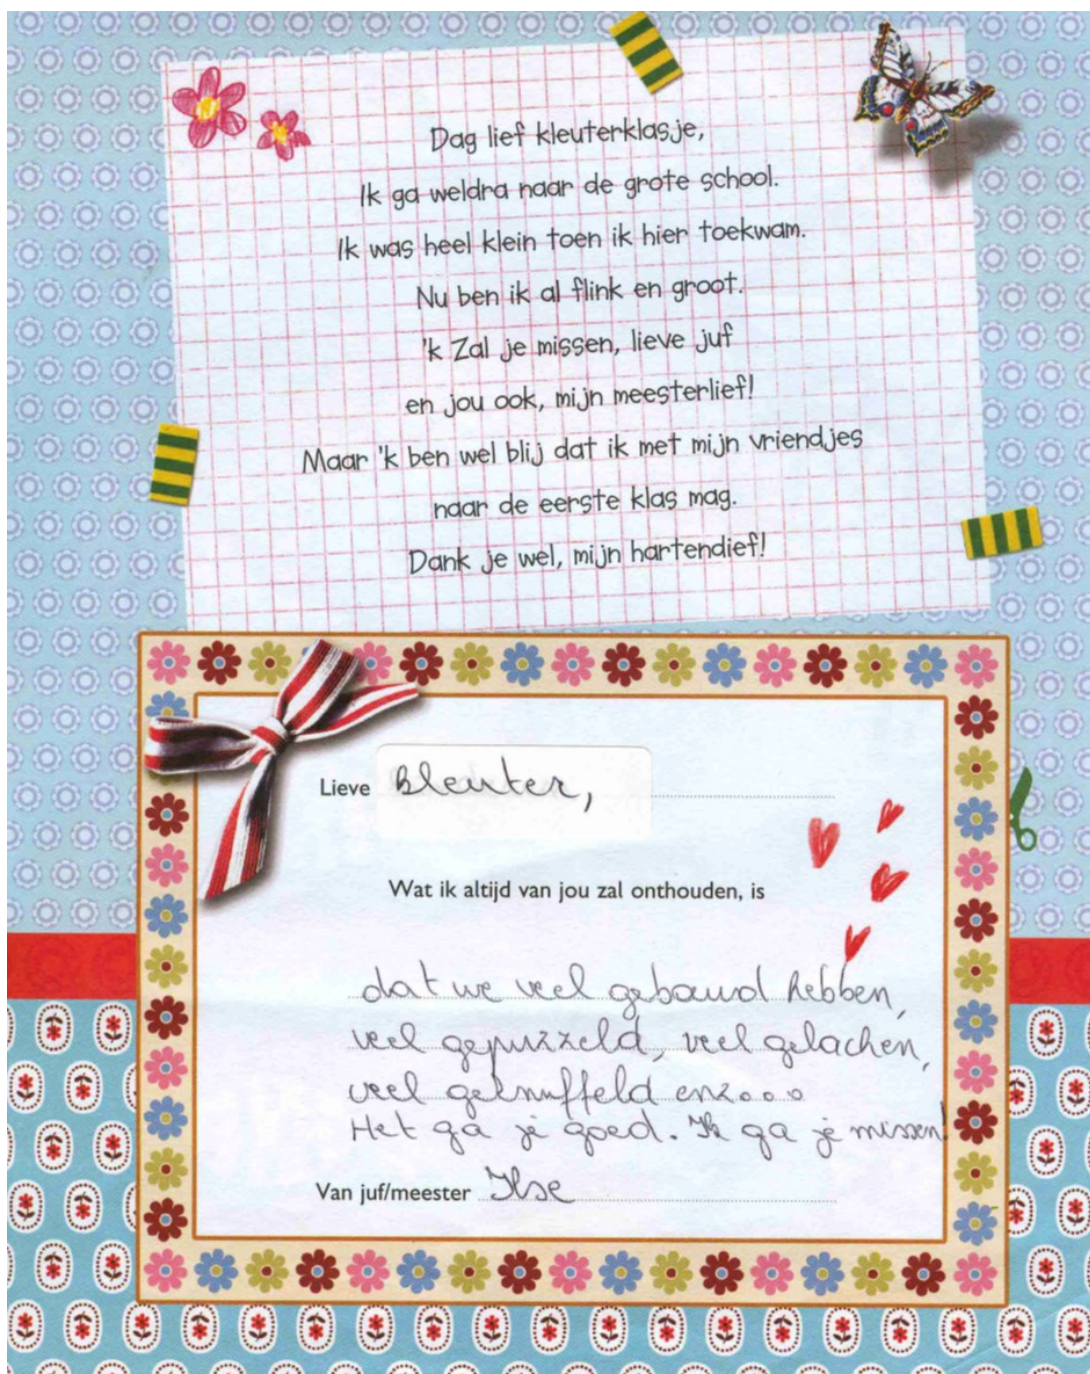 Dag lief kleuterklasje,
Ik ga weldra naar de grote school.
Ik was heel klein toen ik hier toekwam.
Nu ben ik al flink en groot.
'k Zal je missen, lieve juf
en jou ook, mijn meesterlief!
Maar 'k ben wel blij dat ik met mijn vriendjes
naar de eerste klas mag.
Dank je wel, mijn hartendief!
Lieve kleuter,
Wat ik altijd van jou zal onthouden, is
dat we veel gebouwd hebben,
veel gepuzzeld, veel gelachen,
veel geknuffeld enzooo
Het ga je goed. Ik ga je missen!
Van juf/meester Ilse